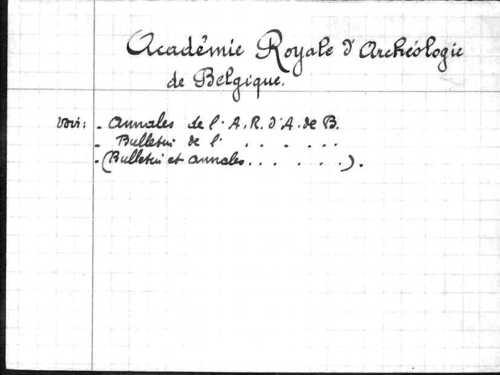 Académie Royale d'Archéologie
de Belgique.
Voir: - Annales de l'A.R. d'A. de B.
- Bulletin de l' . . . . . .
- (Bulletin et annales . . . . . . ).